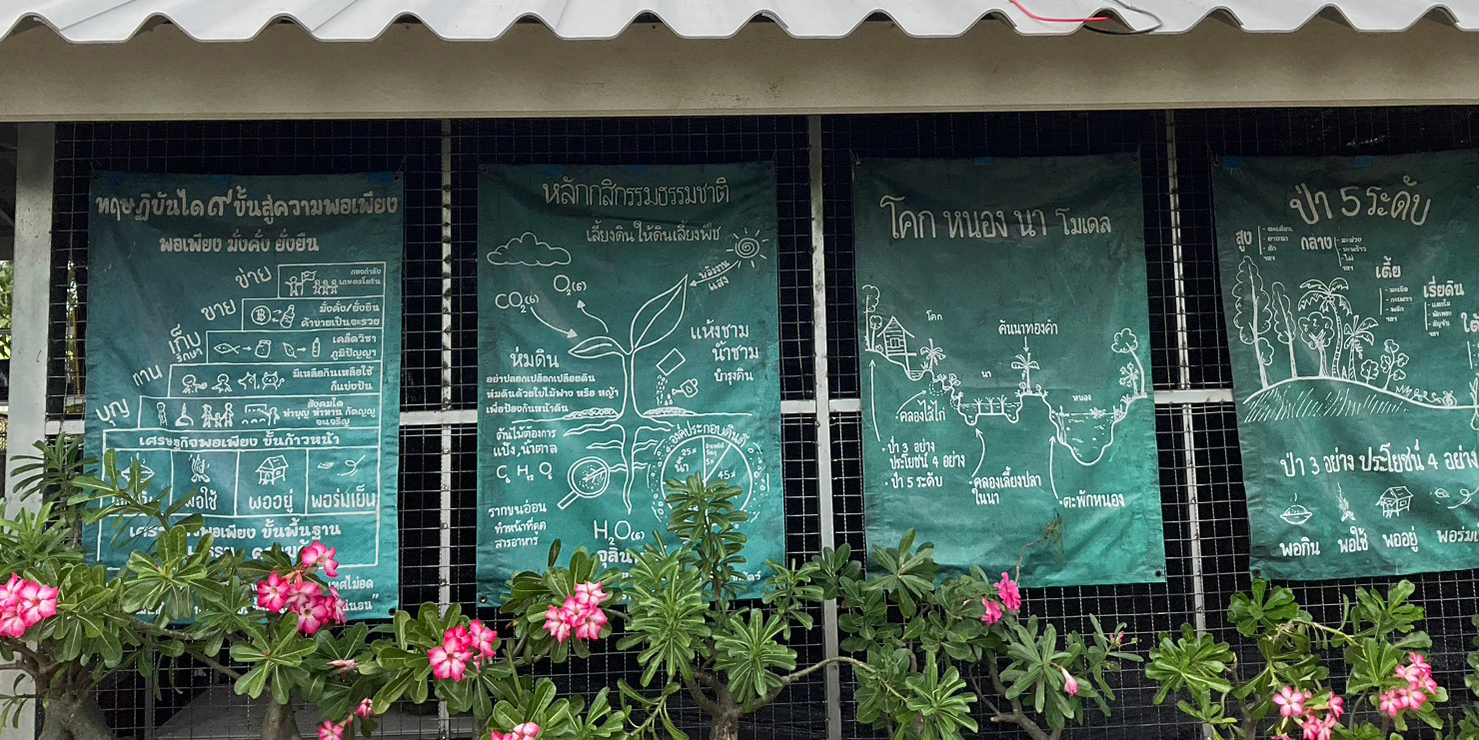 ทฤษฎีบันได ๙ ขั้นสู่ความพอเพียง
พอเพียง มั่งคั่ง ยั่งยืน
ข่าย
กองกำลัง
เกษตรโยธิน
ขาย
มั่งคั่ง/ยั่งยืน
ค้าขายเป็นจะรวย
เก็บ
รักษา
เคล็ดวิชา
ภูมิปัญญา
ทาน
มีเหลือกินเหลือใช้
ก็แบ่งปัน
บุญ
สังคมใด
ทำบุญ ทำทาน กตัญญู
จะเจริญ
เศรษฐกิจพอเพียง ขั้นก้าวหน้า
พอใช้
พออยู่
พอร่มเย็น
พอเพียง ขั้นพื้นฐาน
หลักกสิกรรมธรรมชาติ
เลี้ยงดินให้ดินเลี้ยงพืช
CO₂(g)
O₂(g)
พลังงาน
แสง
แห้งชาม
น้ำชาม
บำรุงดิน
ห่มดิน
อย่าปลอกเปลือกเปลือยดิน
ห่มดินด้วยใบไม้ฟาง หรือ หญ้า
เพื่อป้องกันหน้าดิน
ต้นไม้ต้องการ
แป้ง, น้ำตาล
C₆ H₁₂ O₆
องค์ประกอบดินดี
25%
น้ำ
5%
45%
รากขนอ่อน
ทำหน้าที่ดูด
สารอาหาร
H₂O(l)
โคก หนอง นา โมเดล
โคก
คันนาทองคำ
นา
หนอง
คลองไส้ไก่
ป่า 3 อย่าง
ประโยชน์ 4 อย่าง
ป่า 5 ระดับ
คลองเลี้ยงปลา
ในนา
ตะพักหนอง
ป่า 5 ระดับ
สูง
กลาง
- มะม่วง
- มะพร้าว
- ไผ่
ฯลฯ
เตี้ย
เรี่ยดิน
ป่า 3 อย่าง ประโยชน์ 4 อย่าง
พอกิน
พอใช้
พออยู่